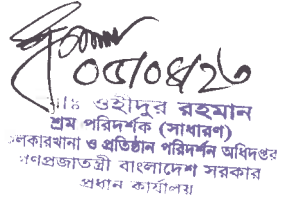 ০৫/০৪/২৩
মোঃ ওহীদুর রহমান
শ্রম পরিদর্শক (সাধারণ)
কলকারখানা ও প্রতিষ্ঠান পরিদর্শন অধিদপ্তর
গণপ্রজাতন্ত্রী বাংলাদেশ সরকার
প্রধান কার্যালয়